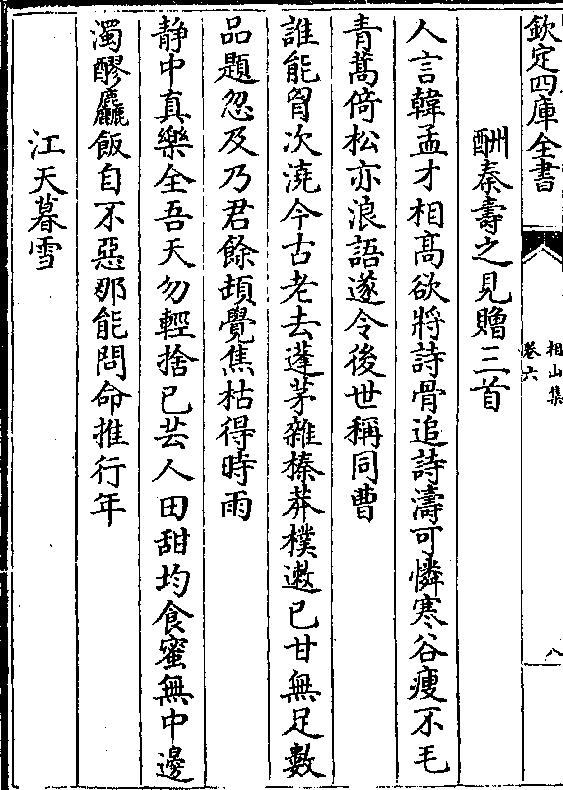 欽定四庫全書
相山集
卷六
八
酬秦壽之見贈三首
人言韓孟才相高欲將詩骨追詩濤可憐寒谷瘦不毛
青蒿倚松亦浪語遂令後世稱同曹
誰能胷次澆今古老去蓬茅雜榛莽樸遬已甘無足數
品題忽及乃君餘頓覺焦枯得時雨
静中真樂全吾天勿輕捨已芸人田甜均食蜜無中邊
濁醪麤飯自不惡那能問命推行年
江天暮雪